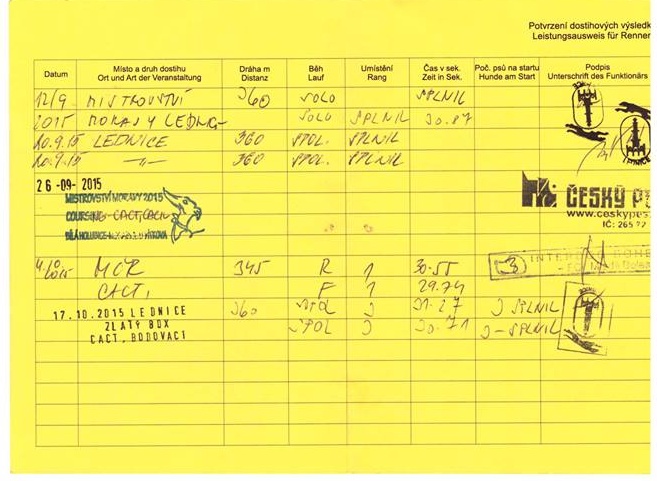 Potvrzení dostihových výsledk
Leistungsausweis für Renner
Datum Místo a druh dostihu Dráha m Běh Umístění Čas v sek. Poč. psů na startu Podpis
Ort und Art der Veranstaltung Distanz Lauf Rang Zeit in Sek. Hunde am Start Unterschrift des Funktionärs
12/9 MISTROVSTVÍ 360 SOLO SPLNIL
2015 MORAVY LEDNI- SOLO SPLNIL 30.87
20.9.15 LEDNICE 360 SPOL. SPLNIL
20.9.15 -"- 360 SPOL. SPLNIL
26-09-2015
MISTROVSTVÍ MORAVY 2015
COURSING - CACT, CACIL
ČESKÝ P
www.ceskypes
IČ: 265
4/10 2015 MČR 345 R 1 30.55
CACT, F 1 29.74
17.10.2015 LEDNICE 360 SPOL 3 31.27 3 SPLNIL
ZLATÝ BOX SPOL 3 30.71 3-SPLNIL
CACT, BODOVACÍ